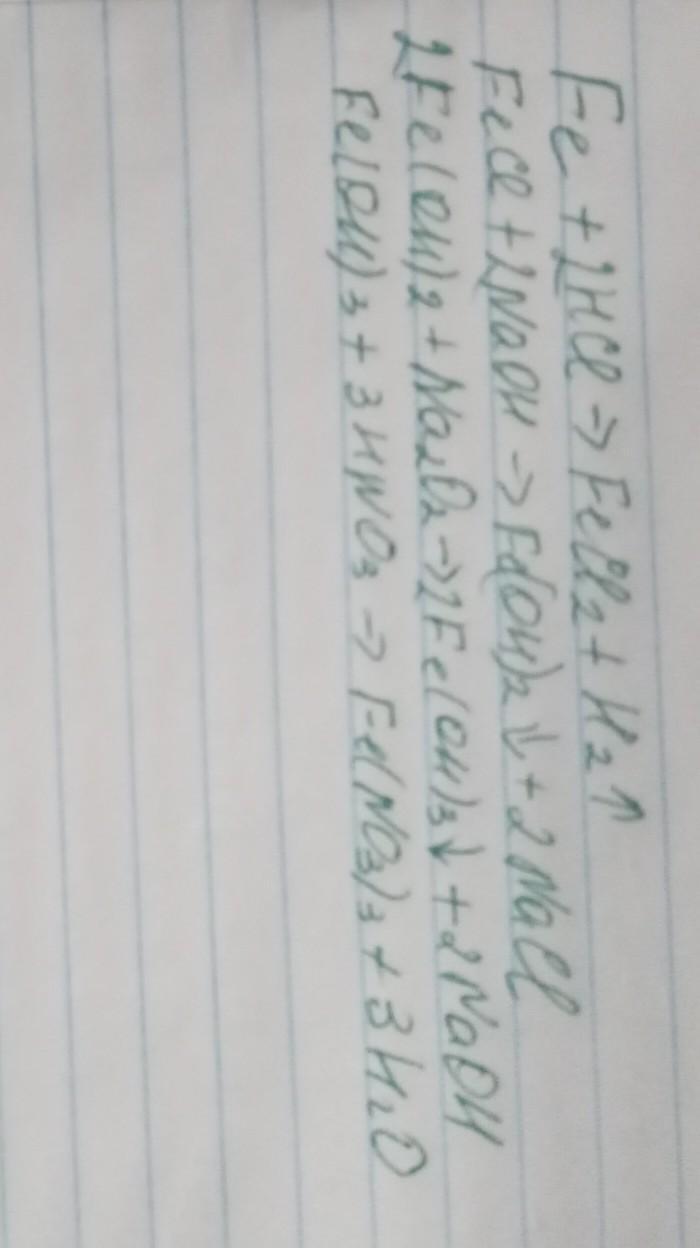 Fe + 2HCl → FeCl₂ + H₂↑
FeCl + 2NaOH → Fe(OH)₂↓ + 2NaCl
2Fe(OH)₂ + Na₂O₂ → 2Fe(OH)₃↓ + 2NaOH
Fe(OH)₃ + 3HNO₃ → Fe(NO₃)₃ + 3H₂O